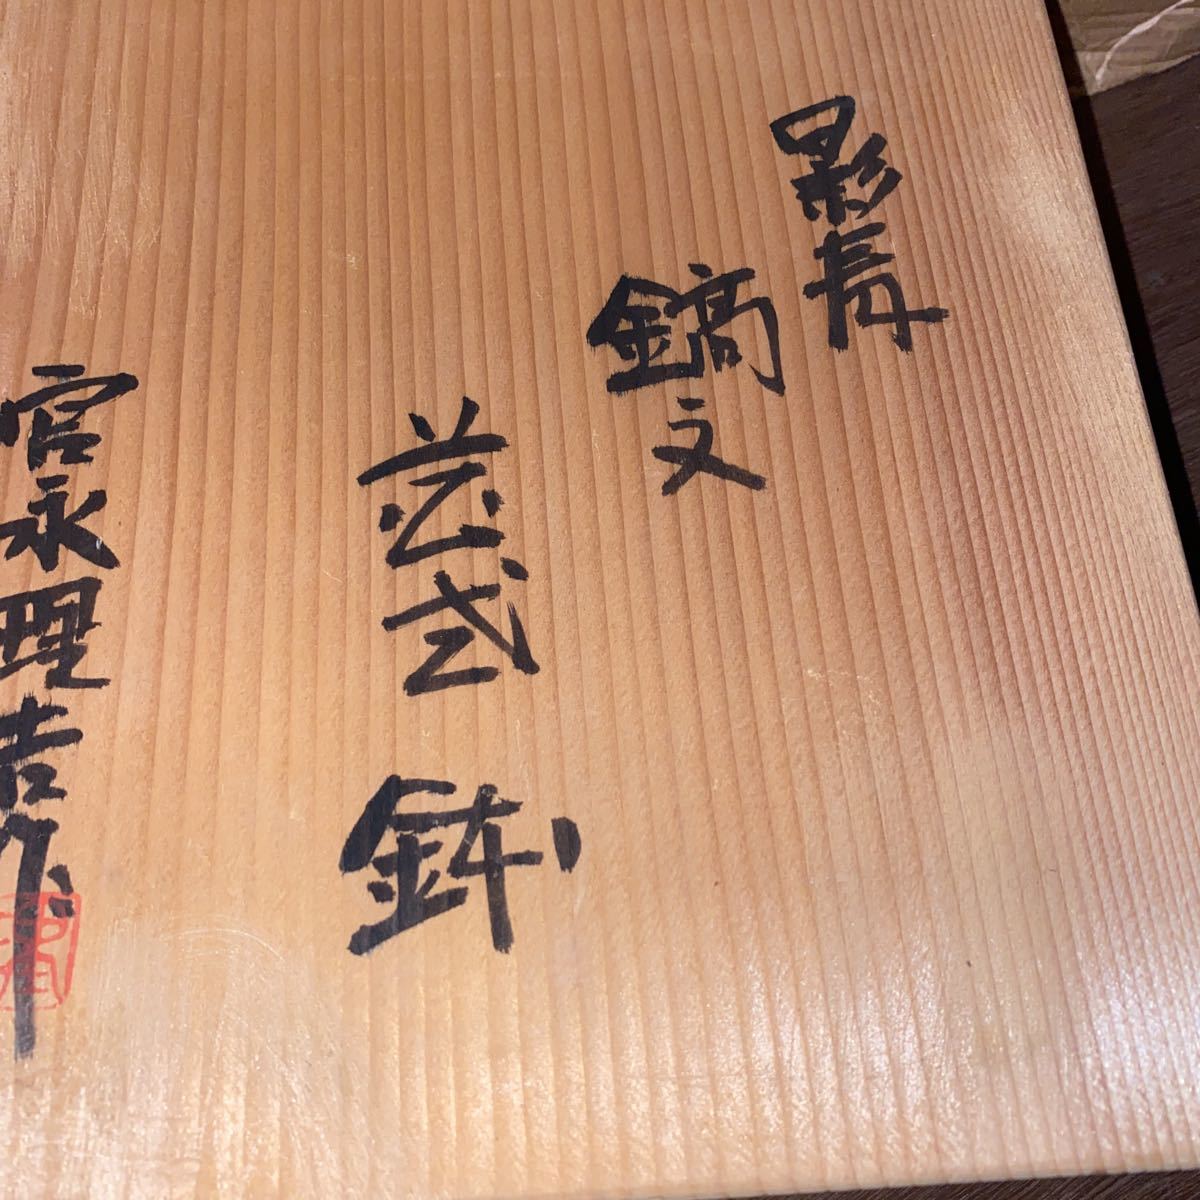 影青
鎬文
鉢
宮永理吉作